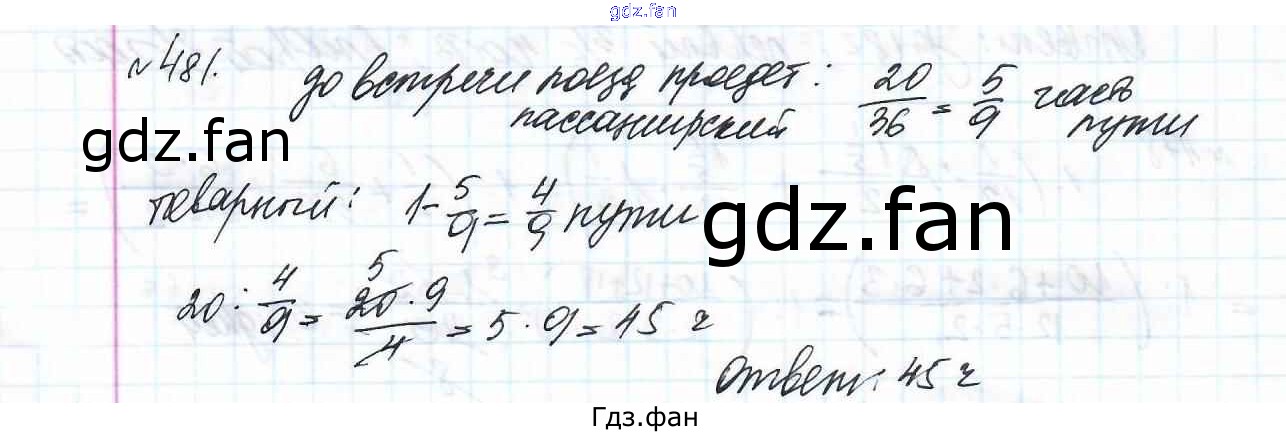 gdz.fan
№481. до встречи поезд проедет:
пассажирский 20/36 = 5/9 часть пути
gdz.fan
товарный: 1-5/9=4/9 пути
gdz.fan
20:4/9=20·9/4=5·9=45 ч
5
Ответ: 45 ч
Гдз.фан